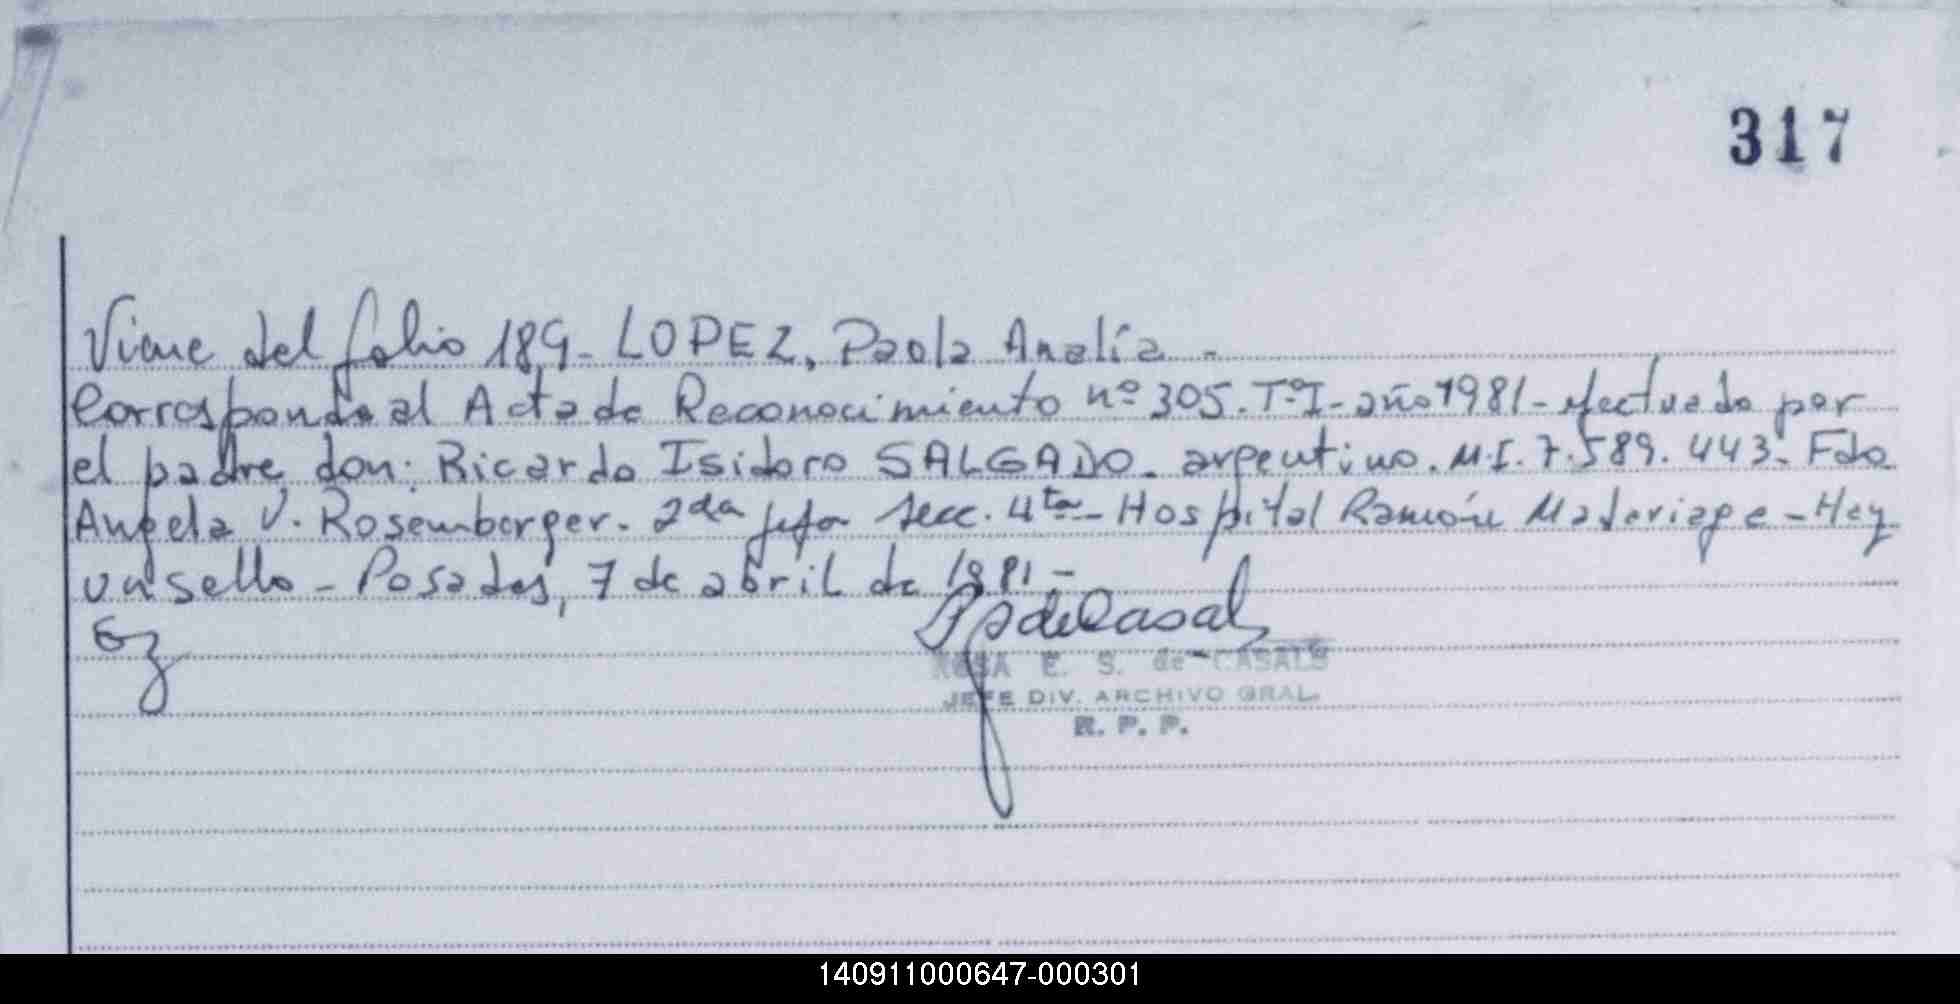 317
Viene del folio 189- LOPEZ, Paola Analía -
Corresponde al Acta de Reconocimiento nº 305. Tº I - año 1981 - efectuado por
el padre don: Ricardo Isidoro SALGADO - argentino. M.I. 7.589.443. Fdo
Angela V. Rosemberger. 2da jefa secc. 4ta - Hospital Ramón Madariaga - Hay
un sello - Posadas, 7 de abril de 1981-
ROSA E. S. de CASALS
JEFE DIV. ARCHIVO GRAL.
R. P. P.
140911000647-000301